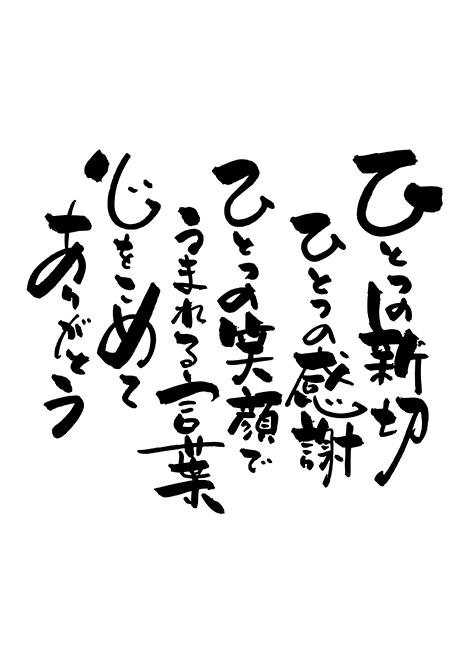 ひとつの新切
ひとつの感謝
ひとつの笑顔で
うまれる言葉
心をこめて
ありがとう